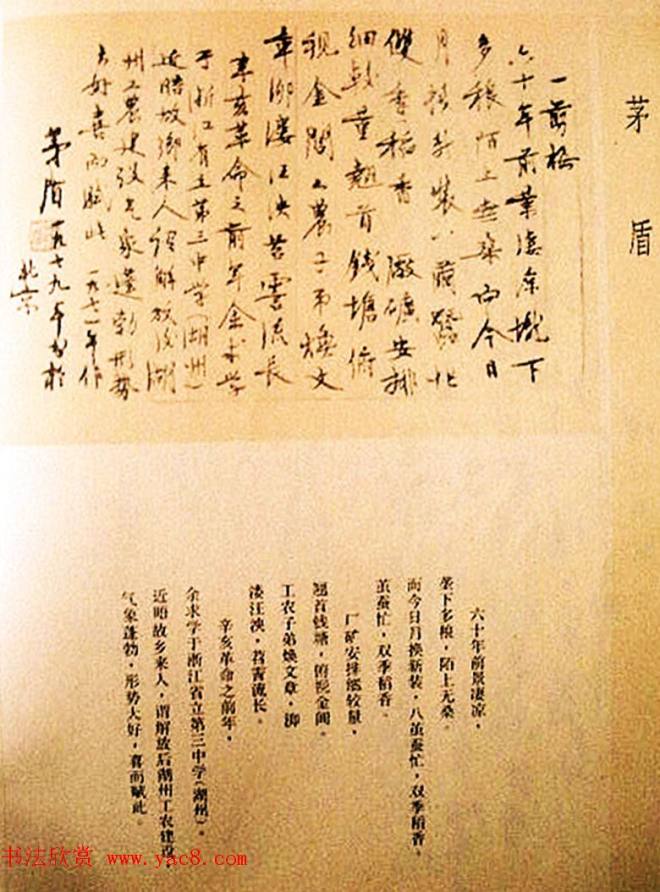 茅盾
一剪梅
六十年前景凄凉垅下
多稂陌上无桑而今日
月换新装八茧蚕忙
双季稻香 厰矿安排
细较量翘首钱塘俯
视金阊工农子弟焕文
章泖溇汪泱苕霅流长
辛亥革命之前年余求学
于浙江省立第三中学(湖州)
近晤故乡来人谓解放后湖
州工农建设气象蓬勃形势
大好喜而赋此 一九七一年作
茅盾一九七九年书于
北京
六十年前景凄凉,
垄下多稂,陌上无桑。
而今日月换新装,八茧蚕忙,双季稻香。
茧蚕忙,双季稻香。
厂矿安排细较量,
翘首钱塘,俯视金阊。
工农子弟焕文章,泖
溇汪泱,苕霅流长。
辛亥革命之前年,
余求学于浙江省立第三中学(湖州)。
近晤故乡来人,谓解放后湖州工农建设
气象蓬勃,形势大好,喜而赋此。
书法欣赏 www.yac8.com